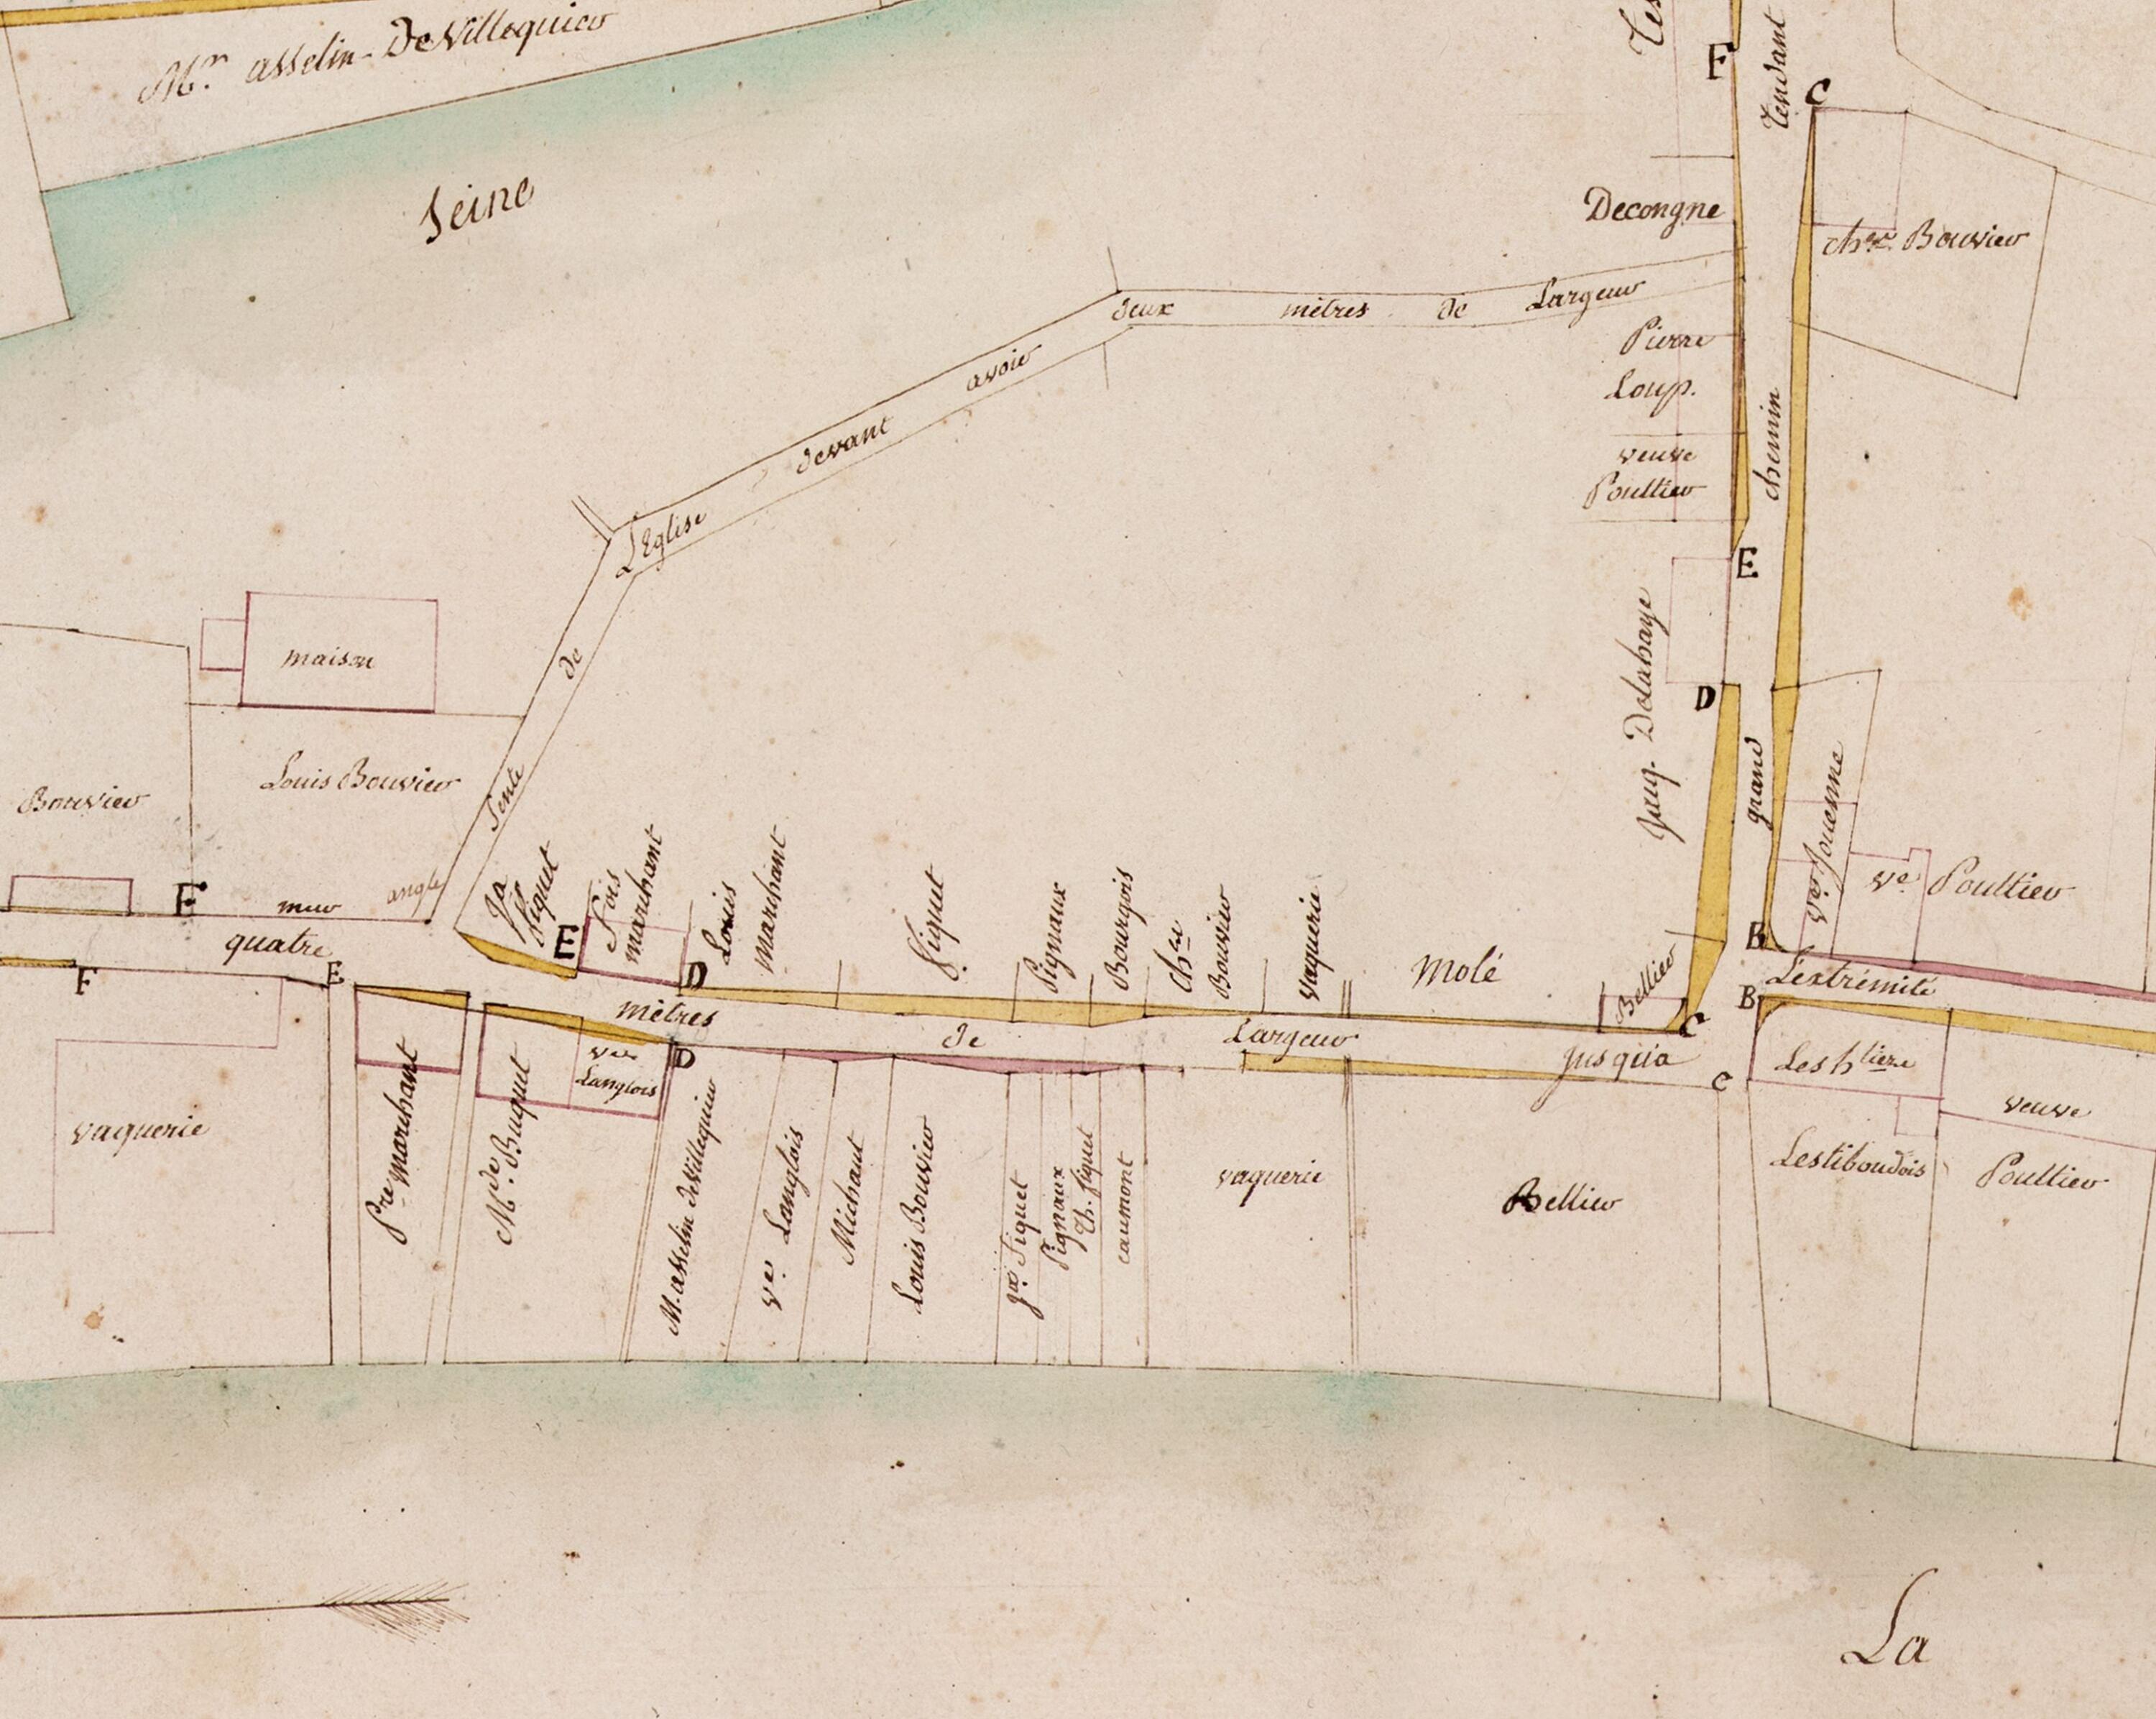 Mr. asselin DeVillequier
Seine
F
Tendant
C
Decongne
chr. Bouvier
deux mètres de Largeur
Pierre
Loup.
veuve
Poultier
chemin
avoir
devant
L'Eglise
de
Sente
E
D
Jaq. Delahaye
grand
ve. Jouenne
ve Poultier
maison
Louis Bouvier
Bouvier
E
mur
angle
quatre
F
E
Ja
fiquet
E
fois
marchant
D
Louis
marchant
f. fiquet
Pignaux
Bourgois
chre
Bouvier
vaquerie
Molé
Bellier
C
B
B
L'extrémité
mètres
de
Largeur
jusqu'a
C
D
vve
Langlois
Les htiers
Lestiboudois
veuve
Poultier
vaquerie
Pre marchant
Mde. Buquet
M. asselin deVillequier
ve. Langlois
Michaut
Louis Bouvier
gr. fiquet
Pignaux
Th. fiquet
caumont
vaquerie
Bellier
La